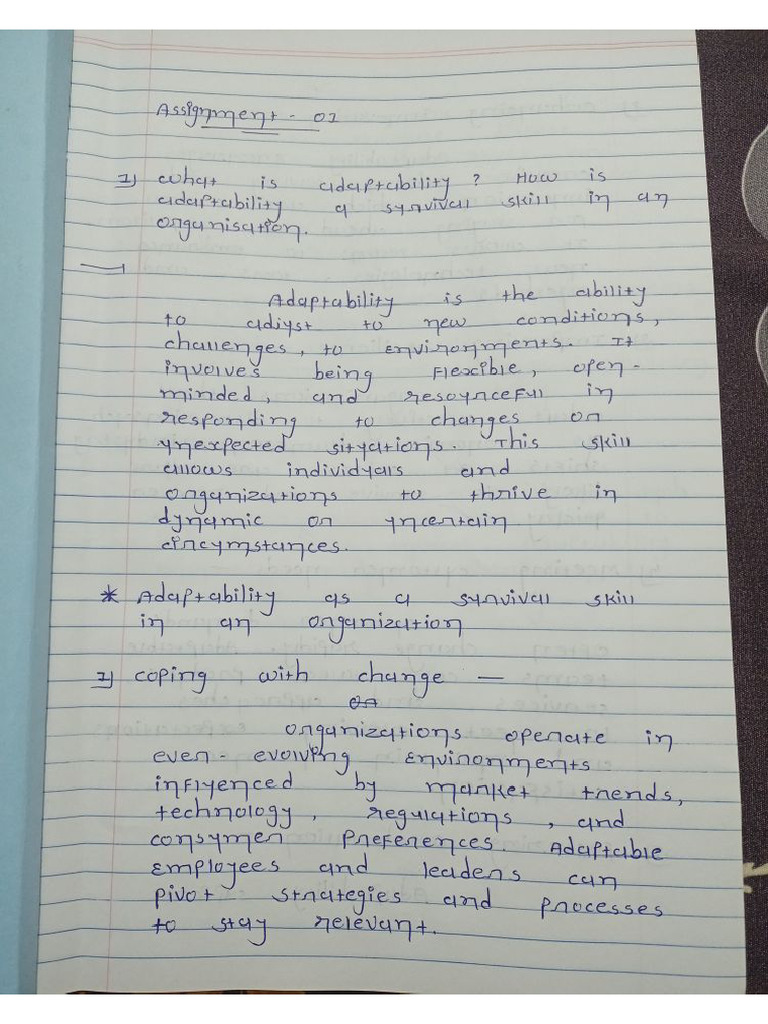 Assignment - 01
1) what is adaptability? How is
adaptability a survival skill in an
organisation.
Adaptability is the ability
to adjust to new conditions,
challenges, to environments. It
involves being flexible, open-
minded, and resourceful in
responding to changes or
unexpected situations. This skill
allows individuals and
organizations to thrive in
dynamic or uncertain
circumstances.
* Adaptability as a survival skill
in an organization
1) coping with change —
organizations operate in
ever-evolving environments
influenced by market trends,
technology, regulations, and
consumer preferences. Adaptable
employees and leaders can
pivot strategies and processes
to stay relevant.